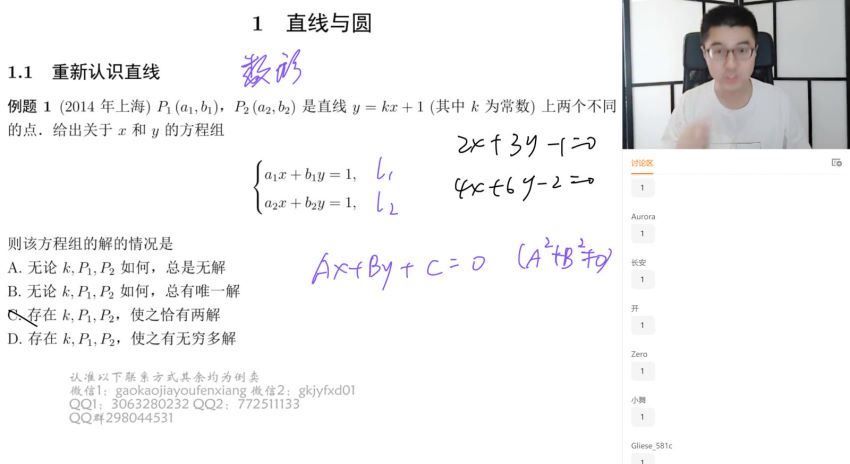 1 直线与圆
1.1 重新认识直线
数形
例题 1 (2014 年上海) P₁(a₁,b₁)，P₂(a₂,b₂) 是直线 y = kx + 1 (其中 k 为常数) 上两个不同
的点．给出关于 x 和 y 的方程组
2x+3y-1=0
4x+6y-2=0
a₁x + b₁y = 1, l₁
a₂x + b₂y = 1, l₂
则该方程组的解的情况是
Ax+By+C=0 (A²+B²≠0)
A. 无论 k, P₁, P₂ 如何，总是无解
B. 无论 k, P₁, P₂ 如何，总有唯一解
C. 存在 k, P₁, P₂，使之恰有两解
D. 存在 k, P₁, P₂，使之有无穷多解
认准以下联系方式其余均为倒卖
微信1：gaokaojiayoufenxiang 微信2：gkjyfxd01
QQ1：3063280232 QQ2：772511133
QQ群298044531
讨论区
1
Aurora
1
长安
1
开
1
Zero
1
小舞
1
Gliese_581c
1